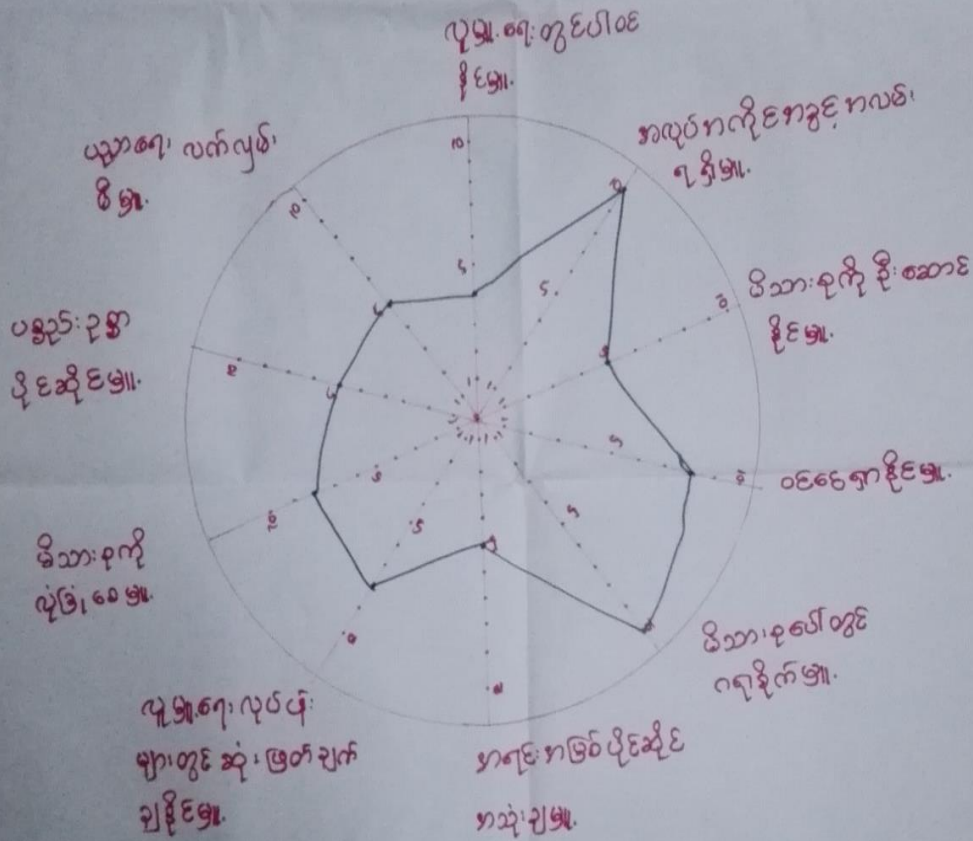 လူမှု့ရေးတွင်ပါဝင်
နိုင်မှု။
အလုပ်အကိုင်အခွင့်အလမ်း
ရရှိမှု။
မိသားစုကို ဦးဆောင်
နိုင်မှု။
ဝင်ငွေရှာနိုင်မှု။
မိသားစုပေါ်တွင်
ဂရုစိုက်မှု။
အရင်းအမြစ်ပိုင်ဆိုင်
အသုံးချမှု။
လူမှု့ရေးလုပ်ငန်း
များတွင် ဆုံးဖြတ်ချက်
ချနိုင်မှု။
မိသားစုကို
လုံခြုံစေမှု။
ပစ္စည်းဥစ္စာ
ပိုင်ဆိုင်မှု။
ပညာရေး လက်လှမ်း
မီမှု။
10
၅
၅
၅
၅
၅